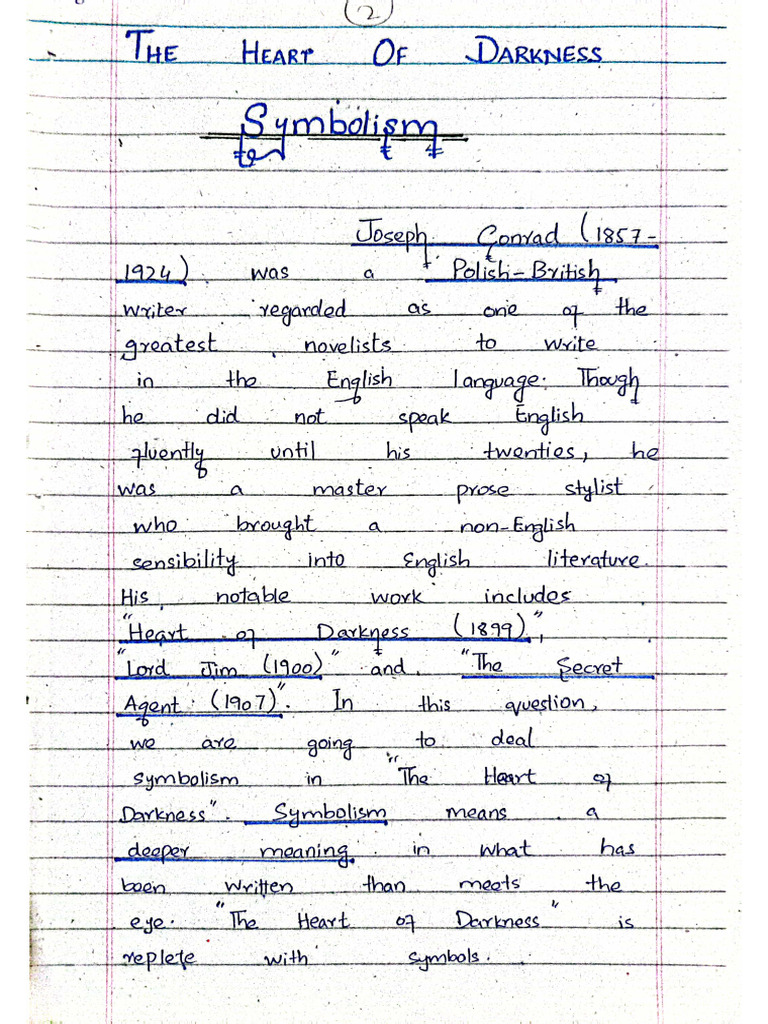 2
THE HEART OF DARKNESS
Symbolism
Joseph Conrad (1857-
1924) was a Polish-British
writer regarded as one of the
greatest novelists to write
in the English language. Though
he did not speak English
fluently until his twenties, he
was a master prose stylist
who brought a non-English
sensibility into English literature.
His notable work includes
"Heart of Darkness (1899)",
"Lord Jim (1900)" and "The Secret
Agent (1907)". In this question,
we are going to deal
symbolism in "The Heart of
Darkness". Symbolism means a
deeper meaning in what has
been written than meets the
eye. "The Heart of Darkness" is
replete with symbols.